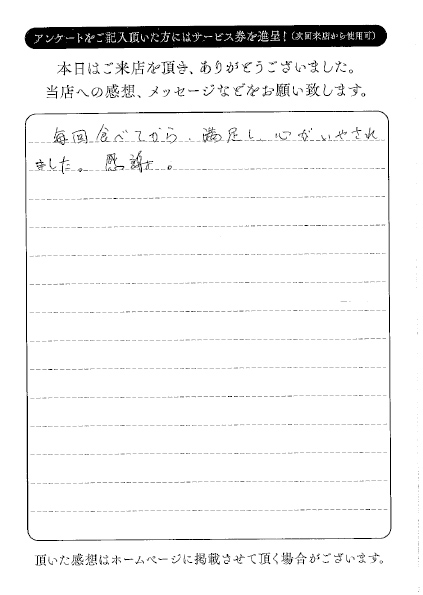 アンケートをご記入頂いた方にはサービス券を進呈!(次回来店から使用可)
本日はご来店を頂き、ありがとうございました。
当店への感想、メッセージなどをお願い致します。
毎回食べてから、満足し、心がいやされ
ました。感謝。
頂いた感想はホームページに掲載させて頂く場合がございます。